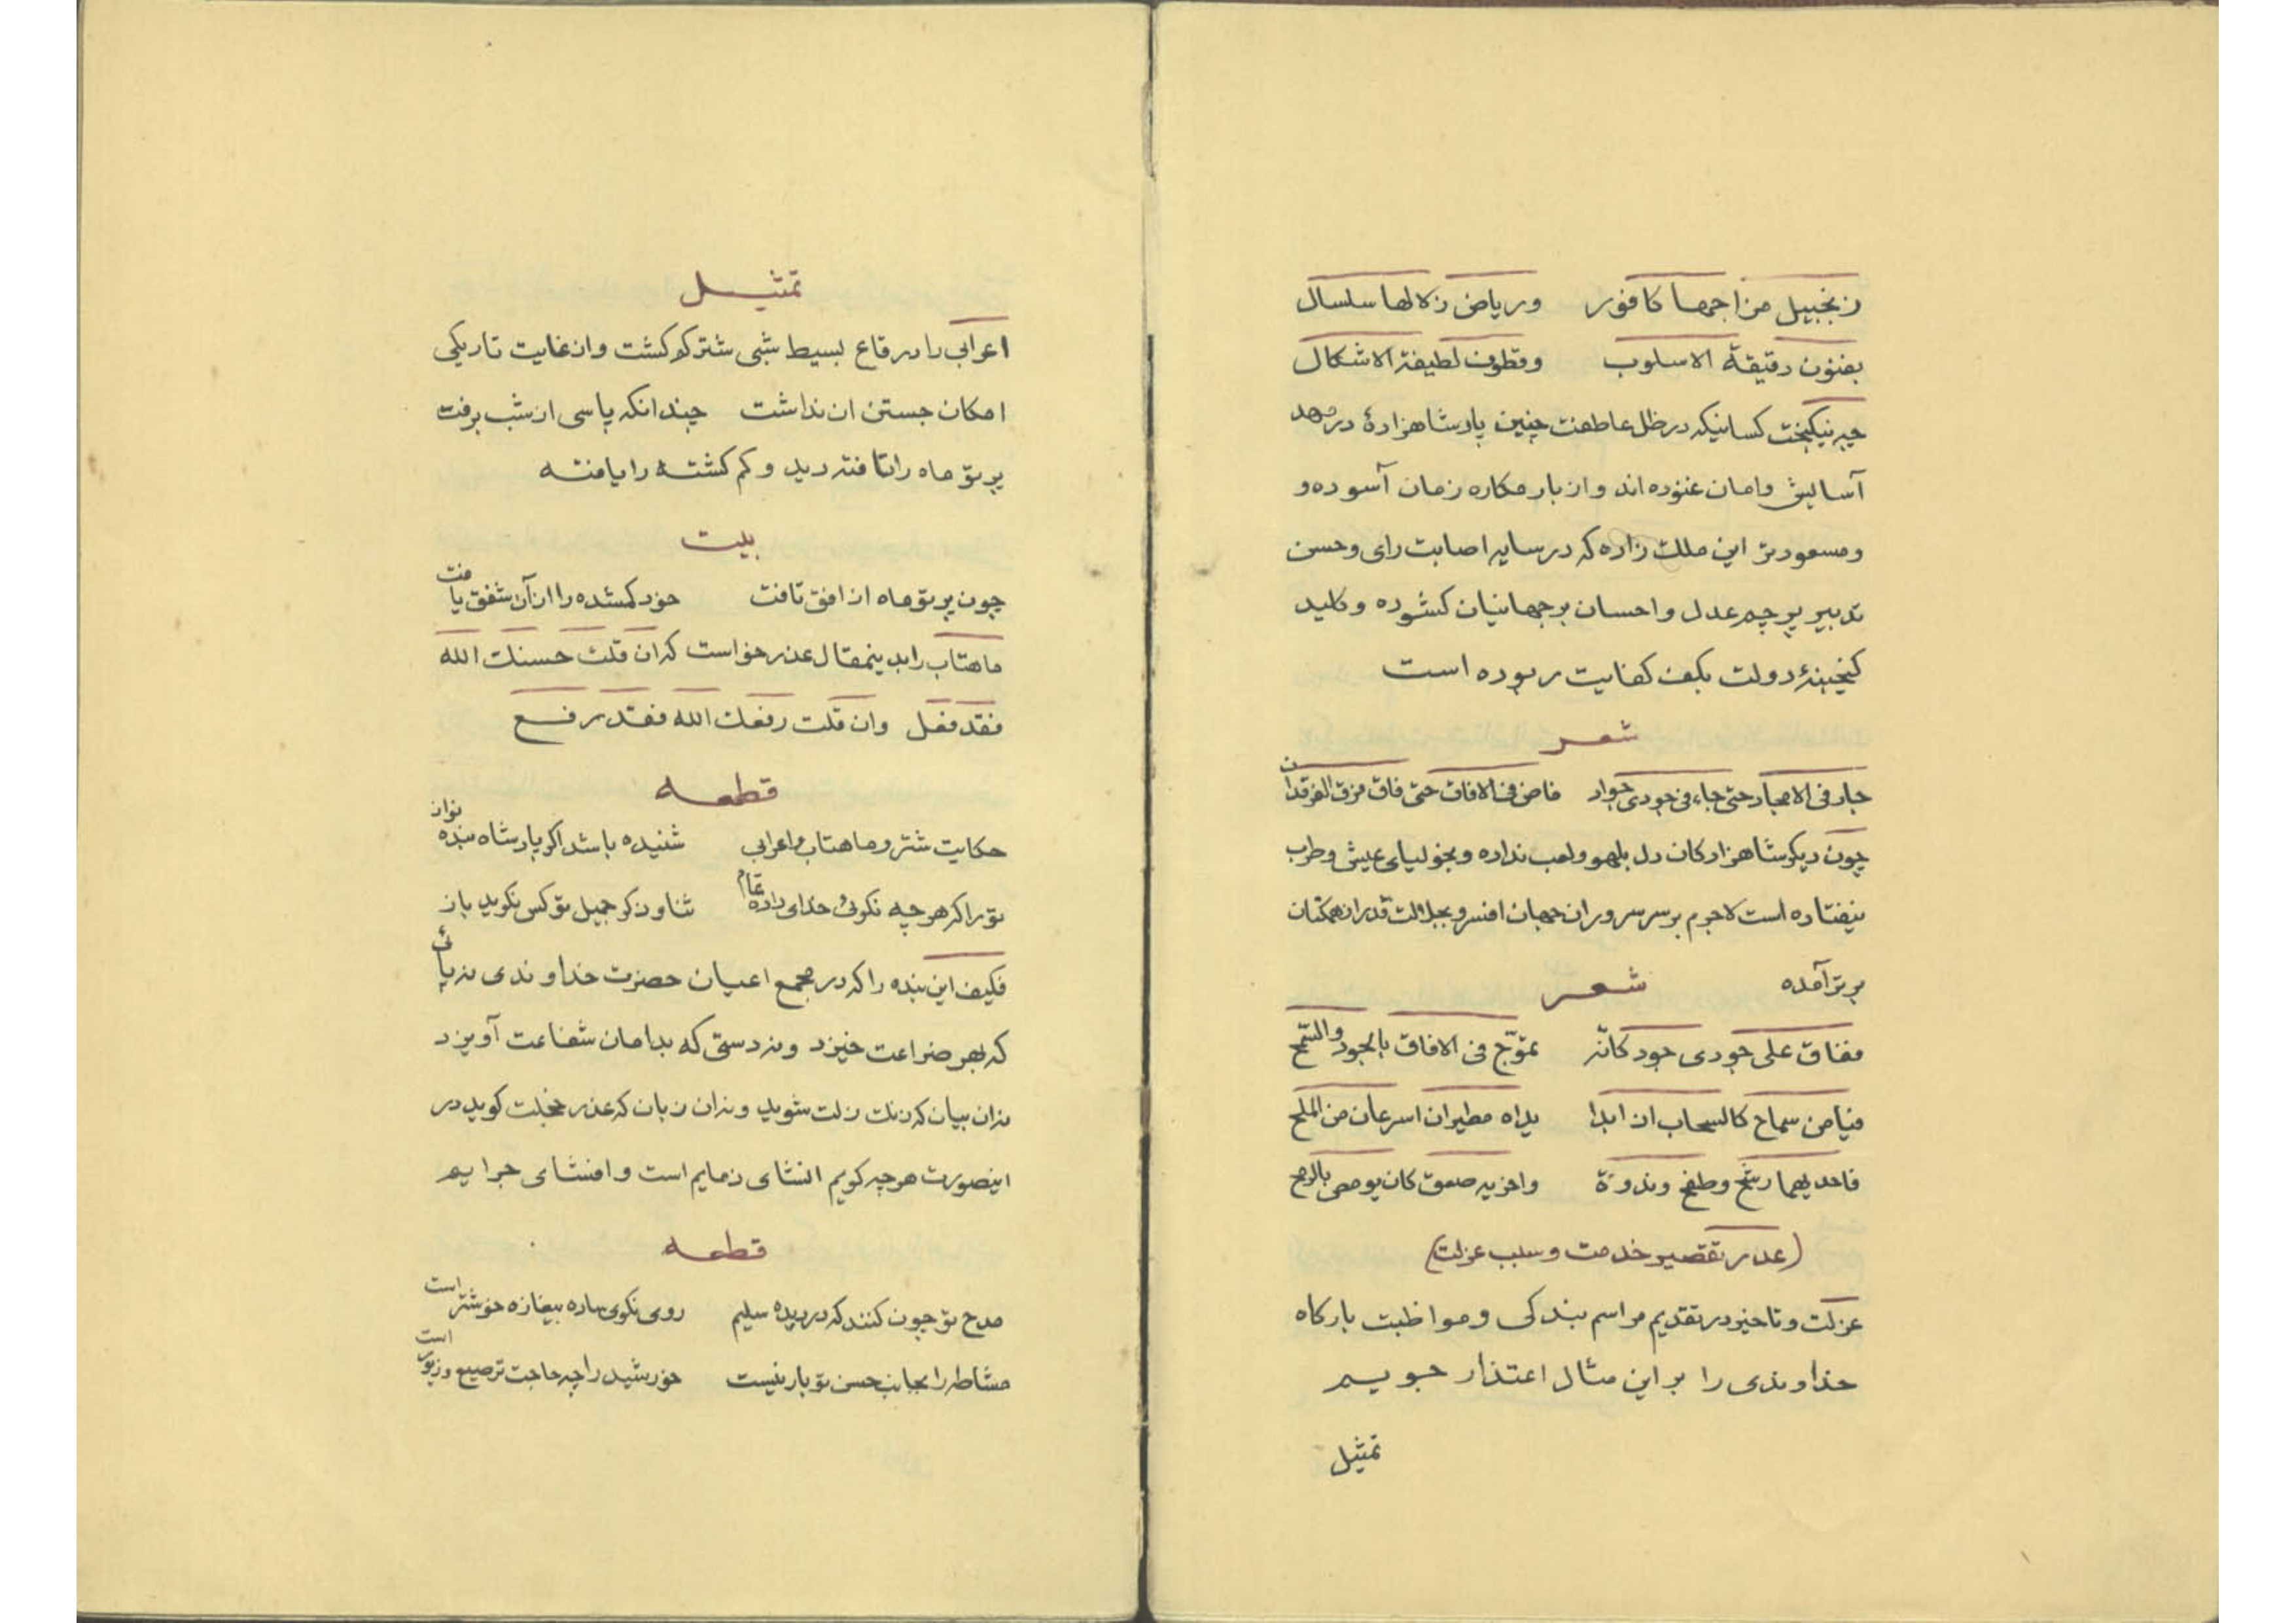 زنجبیل مزاجها کافور وریاض زلالها سلسال
بفنون دقیقة الاسلوب وقطوف لطیفة الاشکال
چه نیکبخت کسانیکه در ظل عاطفت چنین پادشاهزادۀ در مهد
آسایش وامان غنوده اند واز بار مکاره زمان آسوده و
ومسعودتر این ملک زاده که در سایه اصابت رای وحسن
تدبیر پرچم عدل واحسان بر جهانیان کشوده وکلید
کنجینۀ دولت بکف کفایت ربوده است
شعر
جار فی الامجاد حتی جاء فی جودی جواد فاض فی الافاق حتی فاق فرق الفرقدان
چون دیکر شاهزادکان دل بلهو ولعب نداده وبخولیای عیش وطرب
نیفتاده است لاجرم بر سر سروران جهان افسر وبجلالت قدر از همکنان
برتر آمده
شعر
ففاق علی جودی جود کانّه تموّج فی الافاق بالجود والسّمح
فیاض سماح کالسحاب اذ ابدا یداه مطیران اسرعان من الملح
فاحدیهما رشح وطفح وندوة واخریه صعق کان یومض بالرمح
(عذر تقصیر خدمت وسبب عزلت)
عزلت وتاخیر در تقدیم مراسم بندکی ومواظبت بارکاه
خداوندی را بر این مثال اعتذار جویم
تمثیل
تمثیل
اعرابی را در قاع بسیط شبی شتر کم کشت واز غایت تاریکی
امکان جستن ان نداشت چندانکه پاسی از شب برفت
پرتو ماه را تافته دید وکم کشته را یافته
بیت
چون پرتو ماه از افق تافت خود کمشده را از آن شفق یافت
ماهتاب را بدینمقال عذر خواست که ان قلت حسنک الله
فقد فعل وان قلت رفعک الله فقد رفع
قطعه
حکایت شتر وماهتاب واعرابی شنیده باشد اکر پادشاه بنده نواز
تو را که هر چه نکوئی خدای داده تمام ثنا وذکر جمیل تو کس نکوید باز
فکیف این بنده را که در مجمع اعیان حضرت خداوندی نه پائی
که بهر ضراعت خیزد ونه دستی که بدامان شفاعت آویزد
نه ان بیان که زنک زلت شوید ونه ان زبان که عذر خجلت کوید در
اینصورت هر چه کویم انشای ذمایم است وافشای جرایم
قطعه
مدح تو چون کنند که در دیده سلیم روی نکوی ساده بیغازه خوشتر است
مشاطه را بجانب حسن تو بار نیست خورشید را چه حاجت ترصیع وزیور است